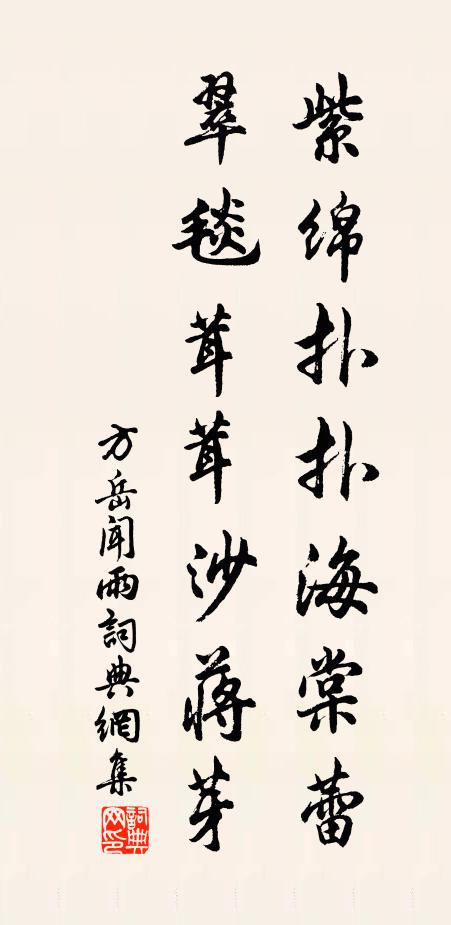 紫绵扑扑海棠蕾
翠毯茸茸沙蒋芽
方岳闻雨詞典網集
詞典网印